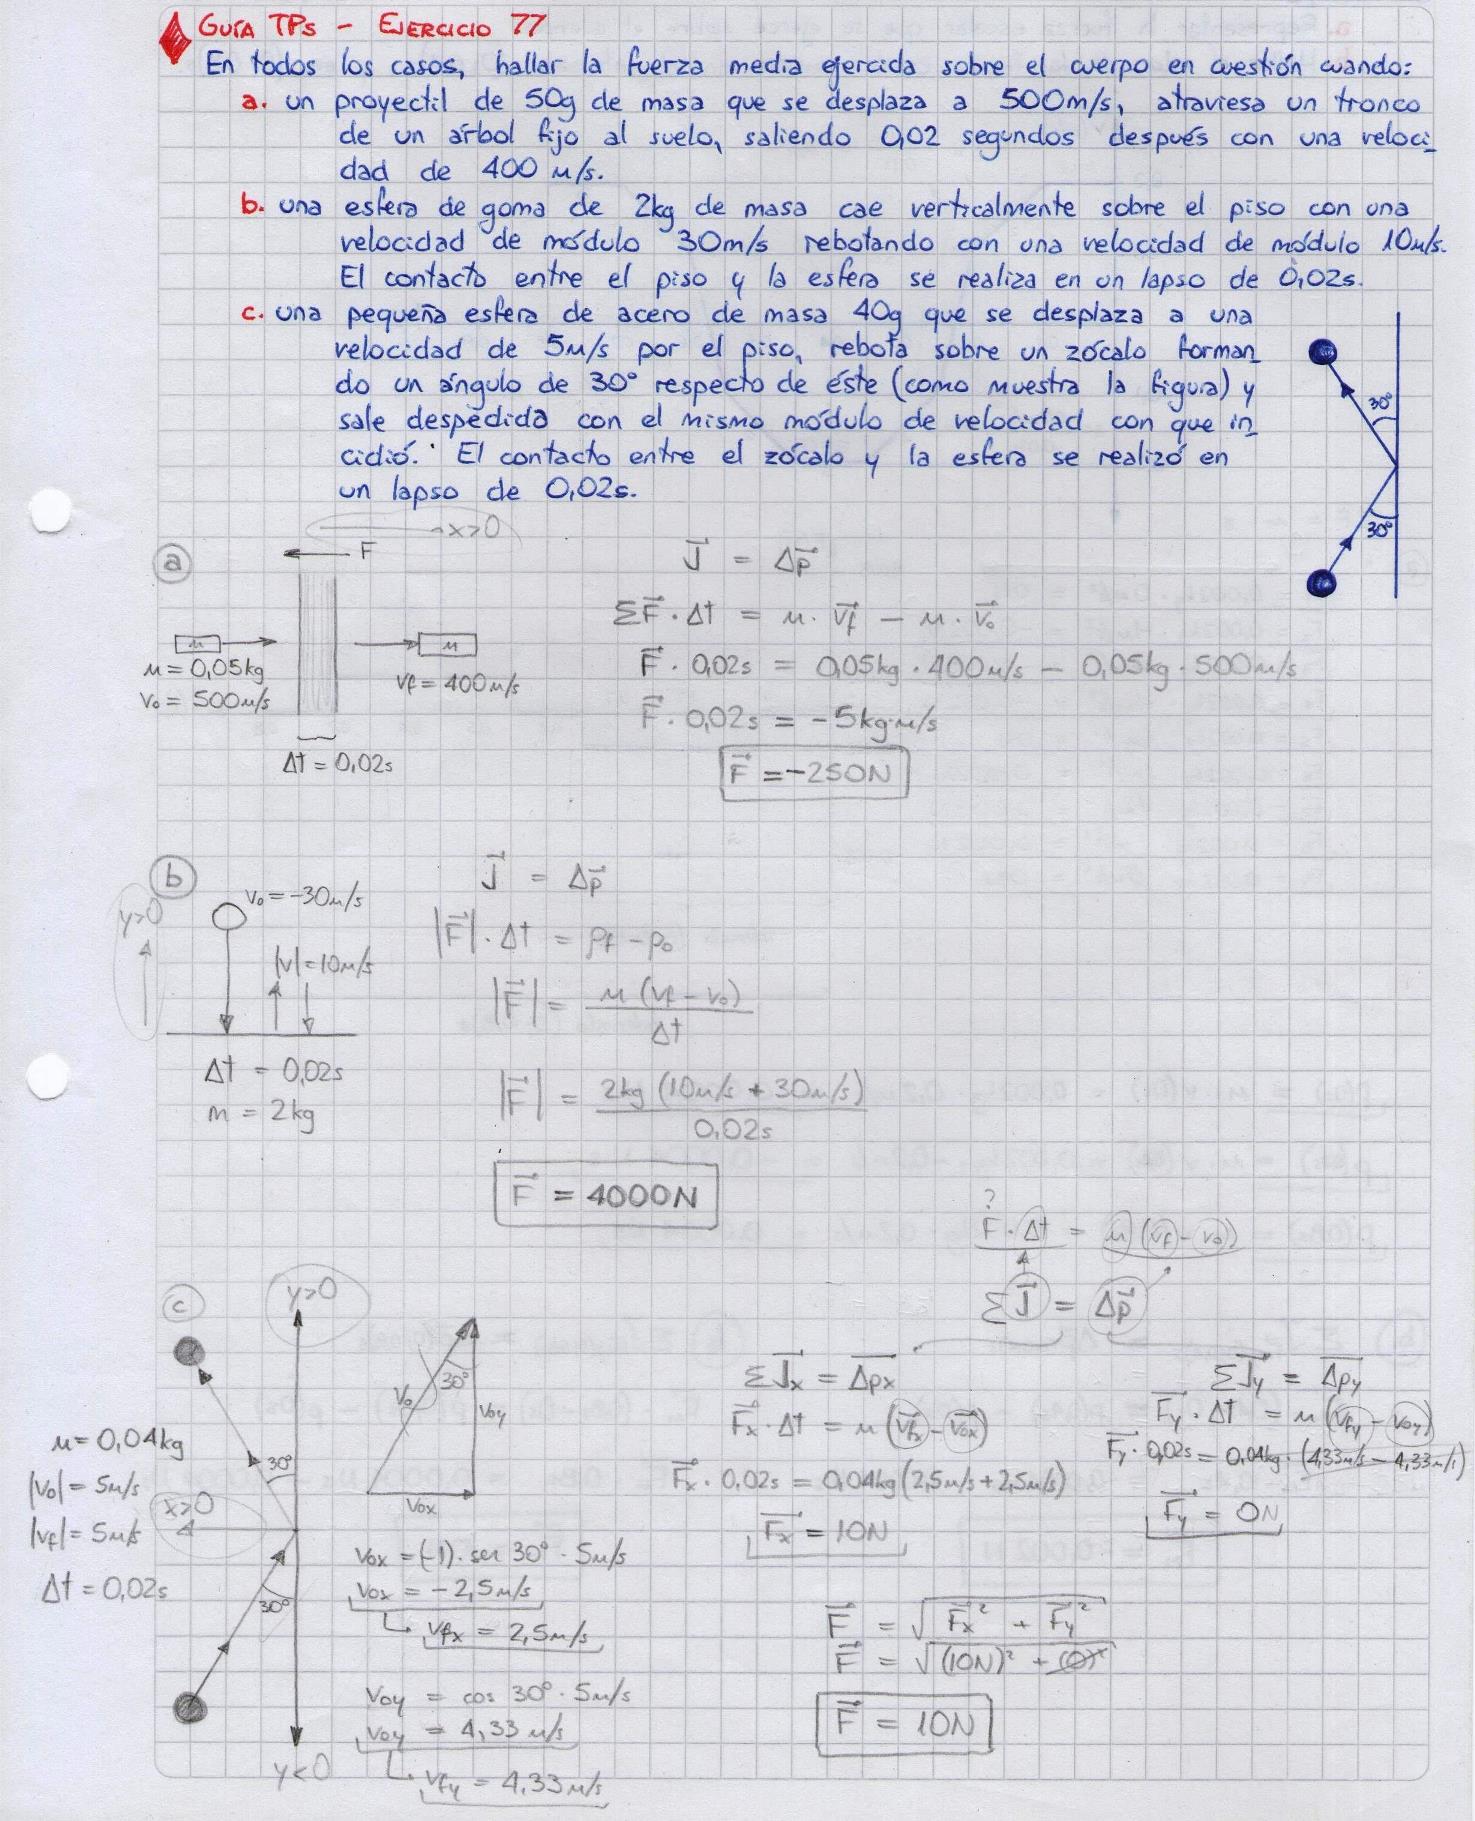 GUÍA TPs - EJERCICIO 77
En todos los casos, hallar la fuerza media ejercida sobre el cuerpo en cuestión cuando:
a. un proyectil de 50g de masa que se desplaza a 500m/s, atraviesa un tronco
de un árbol fijo al suelo, saliendo 0,02 segundos después con una veloci_
dad de 400 m/s.
b. una esfera de goma de 2kg de masa cae verticalmente sobre el piso con una
velocidad de módulo 30m/s rebotando con una velocidad de módulo 10m/s.
El contacto entre el piso y la esfera se realiza en un lapso de 0,02s.
c. una pequeña esfera de acero de masa 40g que se desplaza a una
velocidad de 5m/s por el piso, rebota sobre un zócalo forman_
do un ángulo de 30° respecto de éste (como muestra la figura) y
sale despedida con el mismo módulo de velocidad con que in_
cidió. El contacto entre el zócalo y la esfera se realizó en
un lapso de 0,02s.
30°
30°
a
→x>0
F
m
m = 0,05kg
v₀ = 500m/s
m
vf = 400m/s
Δt = 0,02s
J⃗ = Δp⃗
ΣF⃗ · Δt = m · v⃗f - m · v⃗₀
F⃗ · 0,02s = 0,05kg · 400m/s - 0,05kg · 500m/s
F⃗ · 0,02s = -5kg·m/s
F⃗ = -250N
b
y>0
v₀ = -30m/s
|v| = 10m/s
Δt = 0,02s
m = 2kg
J⃗ = Δp⃗
|F⃗| · Δt = pf - p₀
|F⃗| = m (vf - v₀) / Δt
|F⃗| = 2kg (10m/s + 30m/s) / 0,02s
F⃗ = 4000N
c
y>0
30°
m = 0,04kg
|v₀| = 5m/s
|vf| = 5m/s
Δt = 0,02s
x>0
30°
y<0
v₀
30°
v₀y
v₀x
v₀x = (-1) · sen 30° · 5m/s
v₀x = -2,5m/s
vfx = 2,5m/s
v₀y = cos 30° · 5m/s
v₀y = 4,33 m/s
vfy = 4,33m/s
?
F · Δt = m (vf - v₀)
ΣJ⃗ = Δp⃗
ΣJ⃗x = Δp⃗x
F⃗x · Δt = m (v⃗fx - v⃗ox)
F⃗x · 0,02s = 0,04kg (2,5m/s + 2,5m/s)
F⃗x = 10N
ΣJ⃗y = Δp⃗y
F⃗y · Δt = m (vfy - voy)
F⃗y · 0,02s = 0,04kg · (4,33m/s - 4,33m/s)
F⃗y = 0N
F⃗ = √(F⃗x² + F⃗y²)
F⃗ = √((10N)² + (0)²)
F⃗ = 10N